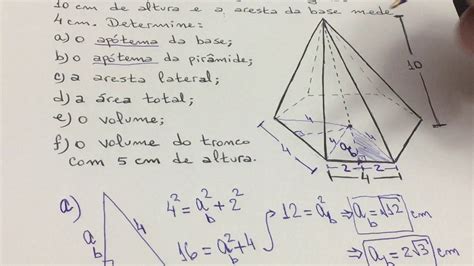 10 cm de altura e a aresta da base mede
4 cm. Determine:
a) o apótema da base;
b) o apótema da pirâmide;
c) a aresta lateral;
d) a área total;
e) o volume;
f) o volume do tronco
com 5 cm de altura.
10
4
4
4
a_b
2 2
4
a)
a_b
4
4² = a_b² + 2²
16 = a_b² + 4
12 = a_b² ⇒ a_b = √12 cm
⇒ a_b = 2√3 cm